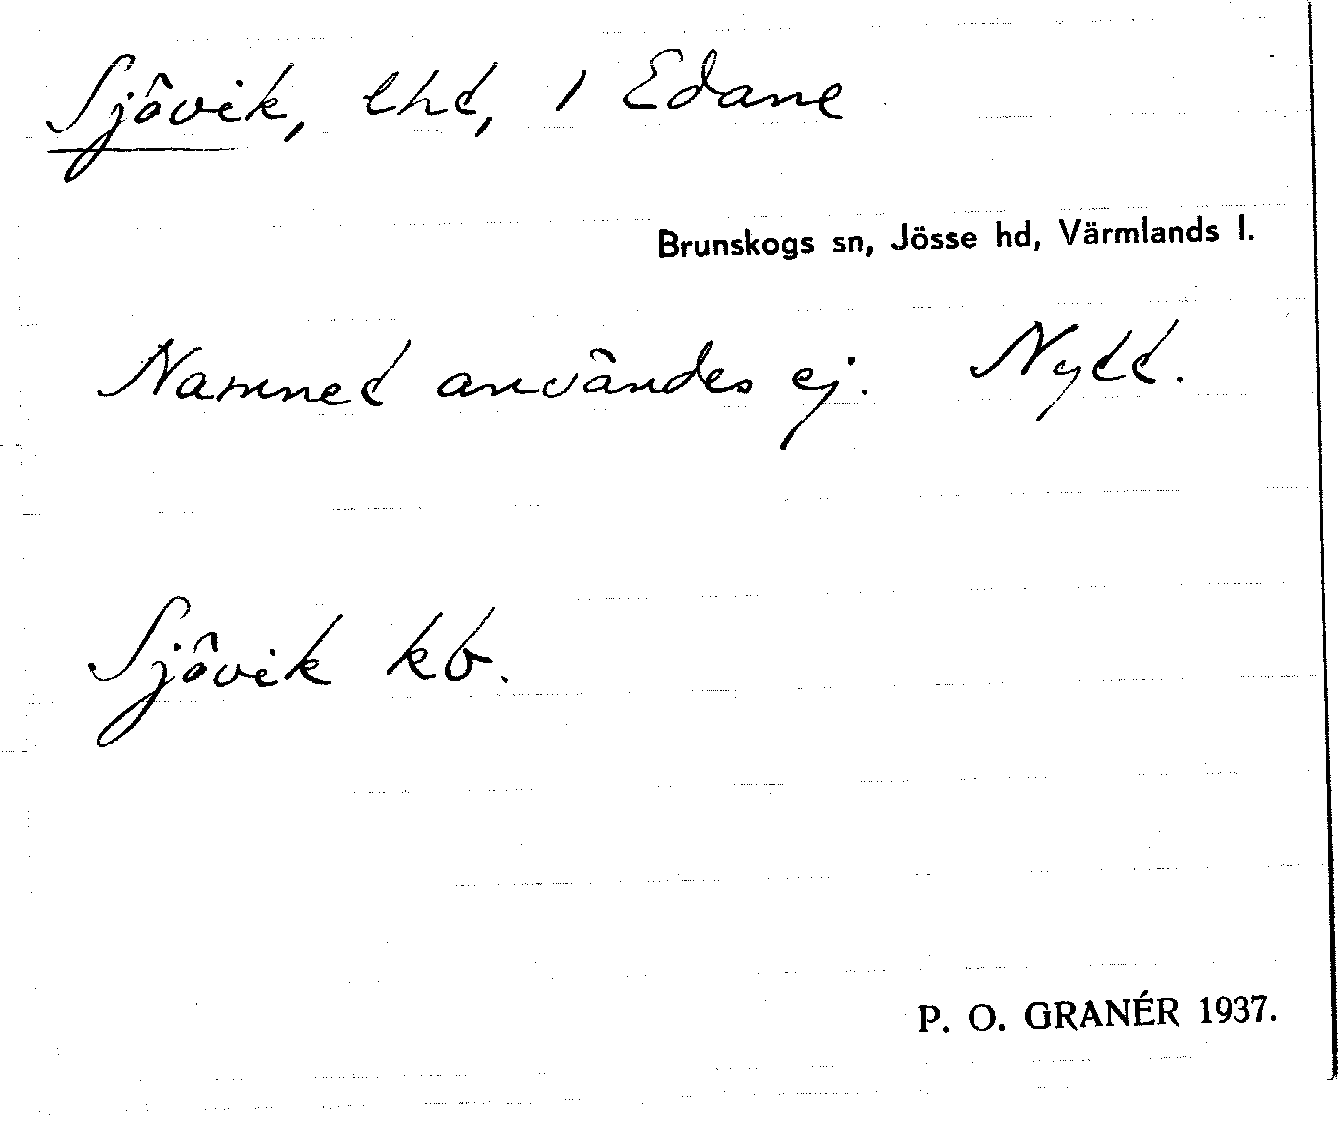 Sjövik, lht, 1 Edane
Brunskogs sn, Jösse hd, Värmlands l.
Namnet användes ej. Nytt.
Sjövik kb.
P. O. GRANÉR 1937.